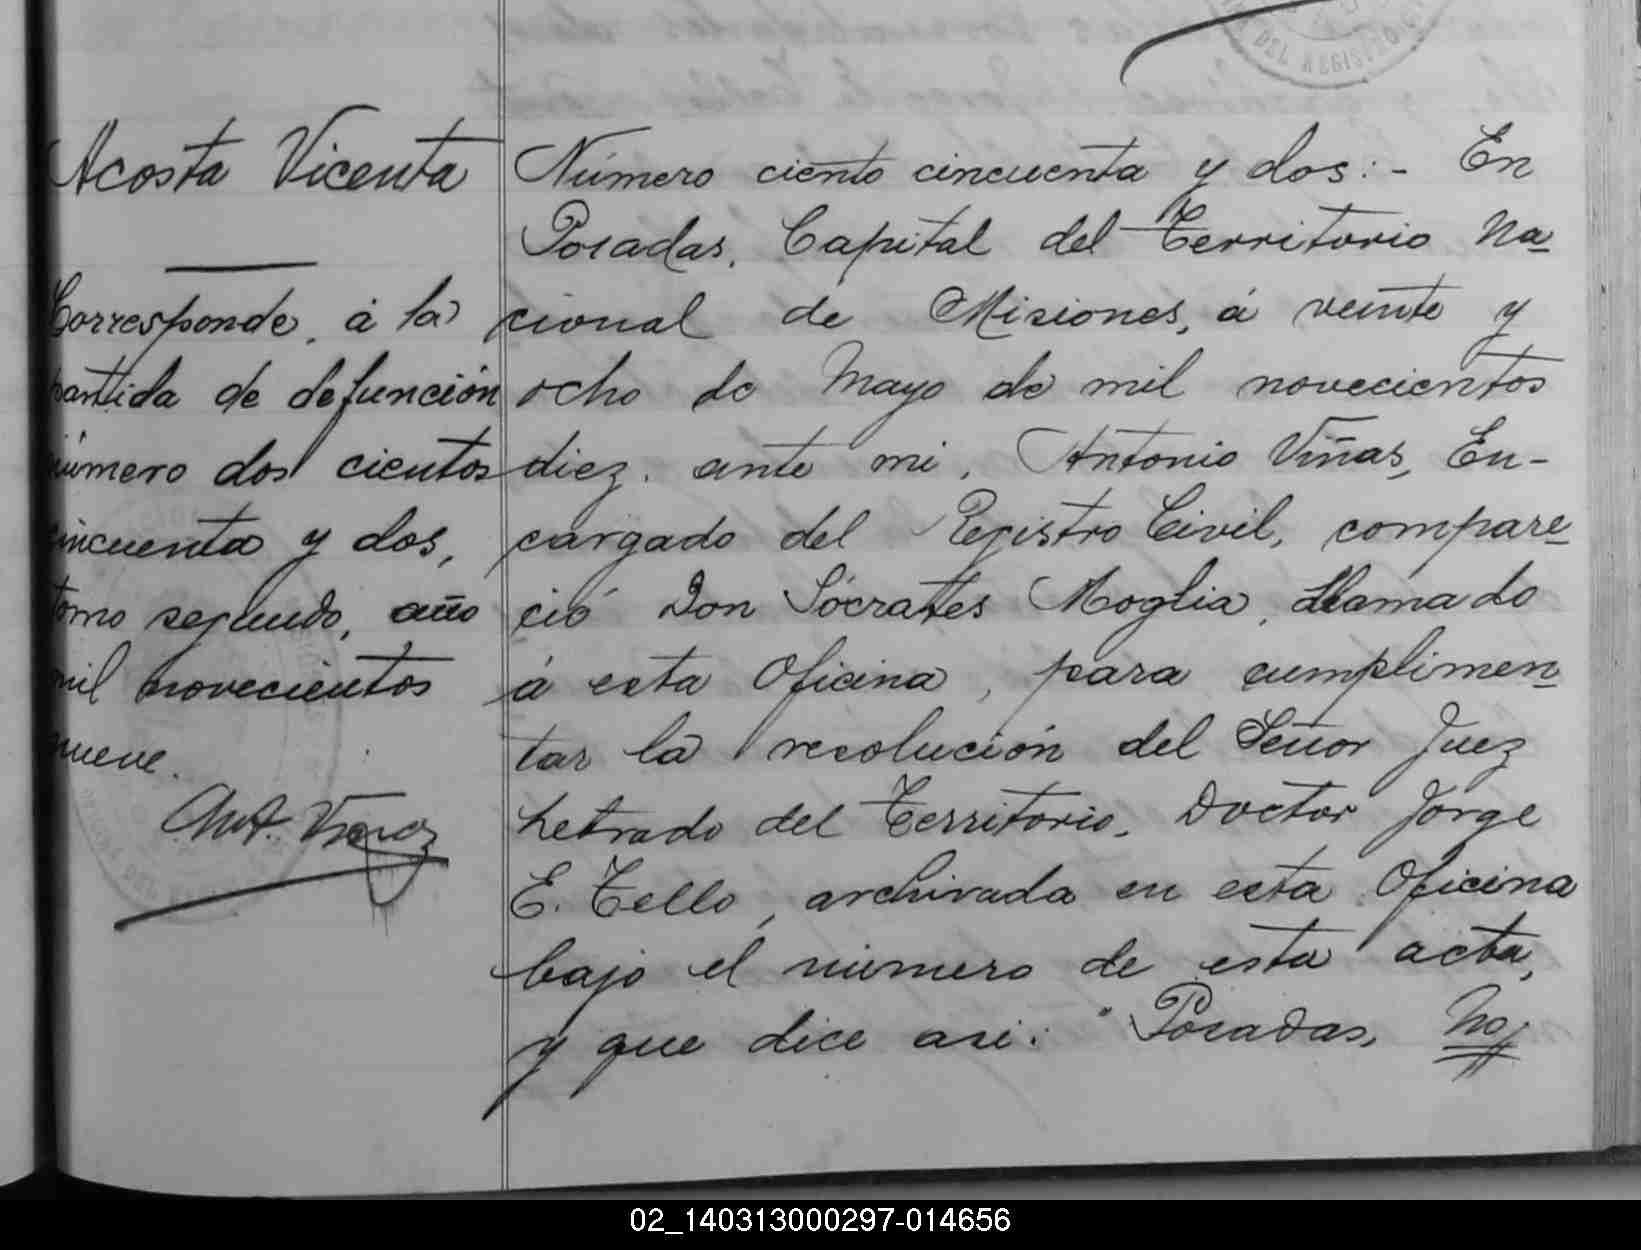 DEL REGISTRO
Acosta Vicenta
Corresponde, á la
partida de defunción
número dos cientos
cincuenta y dos,
tomo segundo, año
mil novecientos
nueve.
Ant. Viñas
Número ciento cincuenta y dos:- En
Posadas, Capital del Territorio Na
cional de Misiones, á veinte y
ocho de Mayo de mil novecientos
diez. ante mi, Antonio Viñas, En-
cargado del Registro Civil, compare
ció Don Sócrates Moglia, llamado
á esta Oficina, para cumplimen
tar la resolución del Señor Juez
Letrado del Territorio, Doctor Jorge
E. Tello, archivada en esta Oficina
bajo el número de esta acta,
y que dice asi: "Posadas, No
02_140313000297-014656